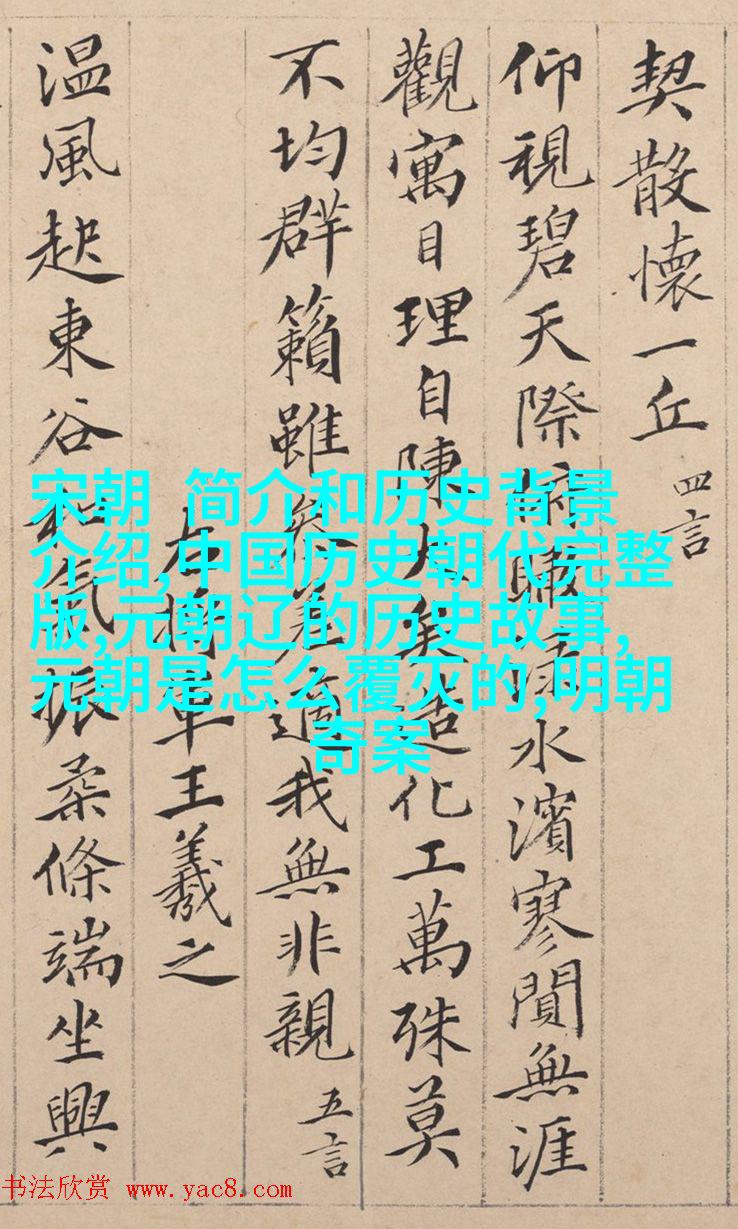 契散懷一丘 四言
仰視碧天際俯瞰淥水濱寥閴無涯
觀寓目理自陳大矣造化工萬殊莫
不均群籟雖參差適我無非親 五言
右將軍王羲之
温風起東谷和氣振柔條端坐興
宋朝 简介和历史背景
介绍,中国历史朝代完整
版,元朝辽的历史故事,
元朝是怎么覆灭的,明朝
奇案
书法欣赏 www.yac8.com